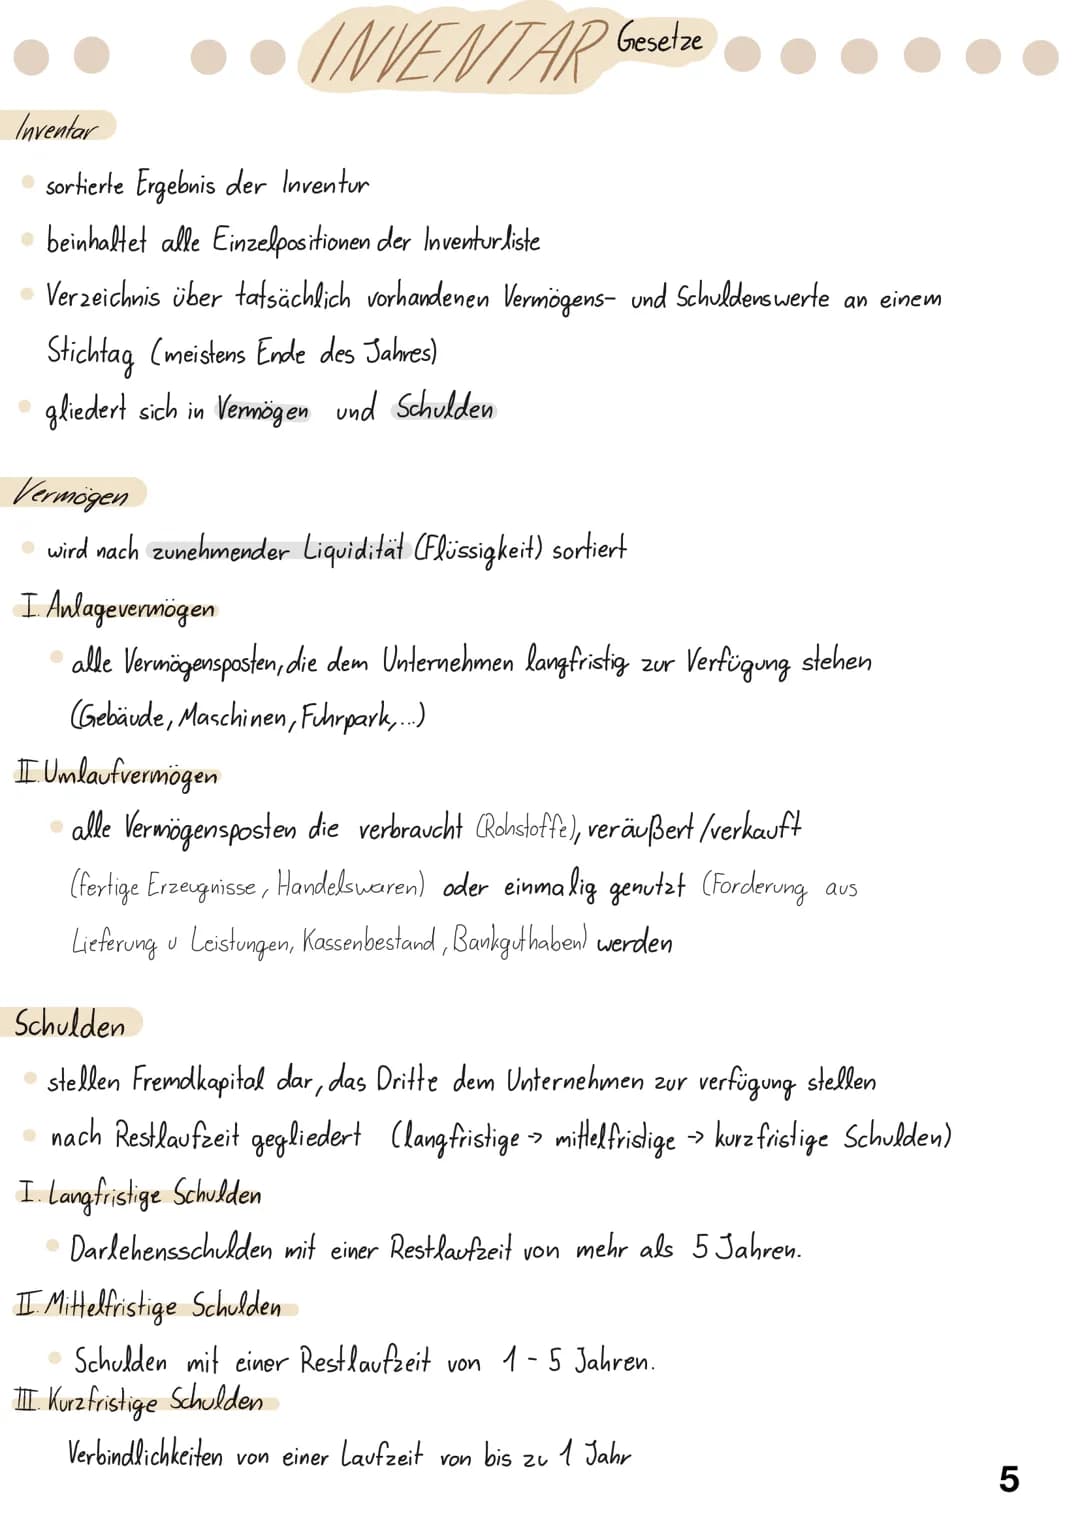 INVENTAR Gesetze
Inventar
sortierte Ergebnis der Inventur
beinhaltet alle Einzelpositionen der Inventurliste
Verzeichnis über tatsächlich vorhandenen Vermögens- und Schuldenswerte an einem
Stichtag (meistens Ende des Jahres)
gliedert sich in Vermögen und Schulden
Vermögen
wird nach zunehmender Liquidität (Flüssigkeit) sortiert
I. Anlagevermögen
alle Vermögensposten, die dem Unternehmen langfristig zur Verfügung stehen
(Gebäude, Maschinen, Fuhrpark, ...)
II. Umlaufvermögen
alle Vermögensposten die verbraucht (Rohstoffe), veräußert / verkauft
(fertige Erzeugnisse, Handelswaren) oder einmalig genutzt (Forderung aus
Lieferung u Leistungen, Kassenbestand, Bankguthaben) werden
Schulden
stellen Fremdkapital dar, das Dritte dem Unternehmen zur verfügung stellen
nach Restlaufzeit gegliedert (langfristige -> mittelfristige -> kurzfristige Schulden)
I. Langfristige Schulden
Darlehensschulden mit einer Restlaufzeit von mehr als 5 Jahren.
II. Mittelfristige Schulden
Schulden mit einer Restlaufzeit von 1 - 5 Jahren.
III. Kurzfristige Schulden
Verbindlichkeiten von einer Laufzeit von bis zu 1 Jahr
5